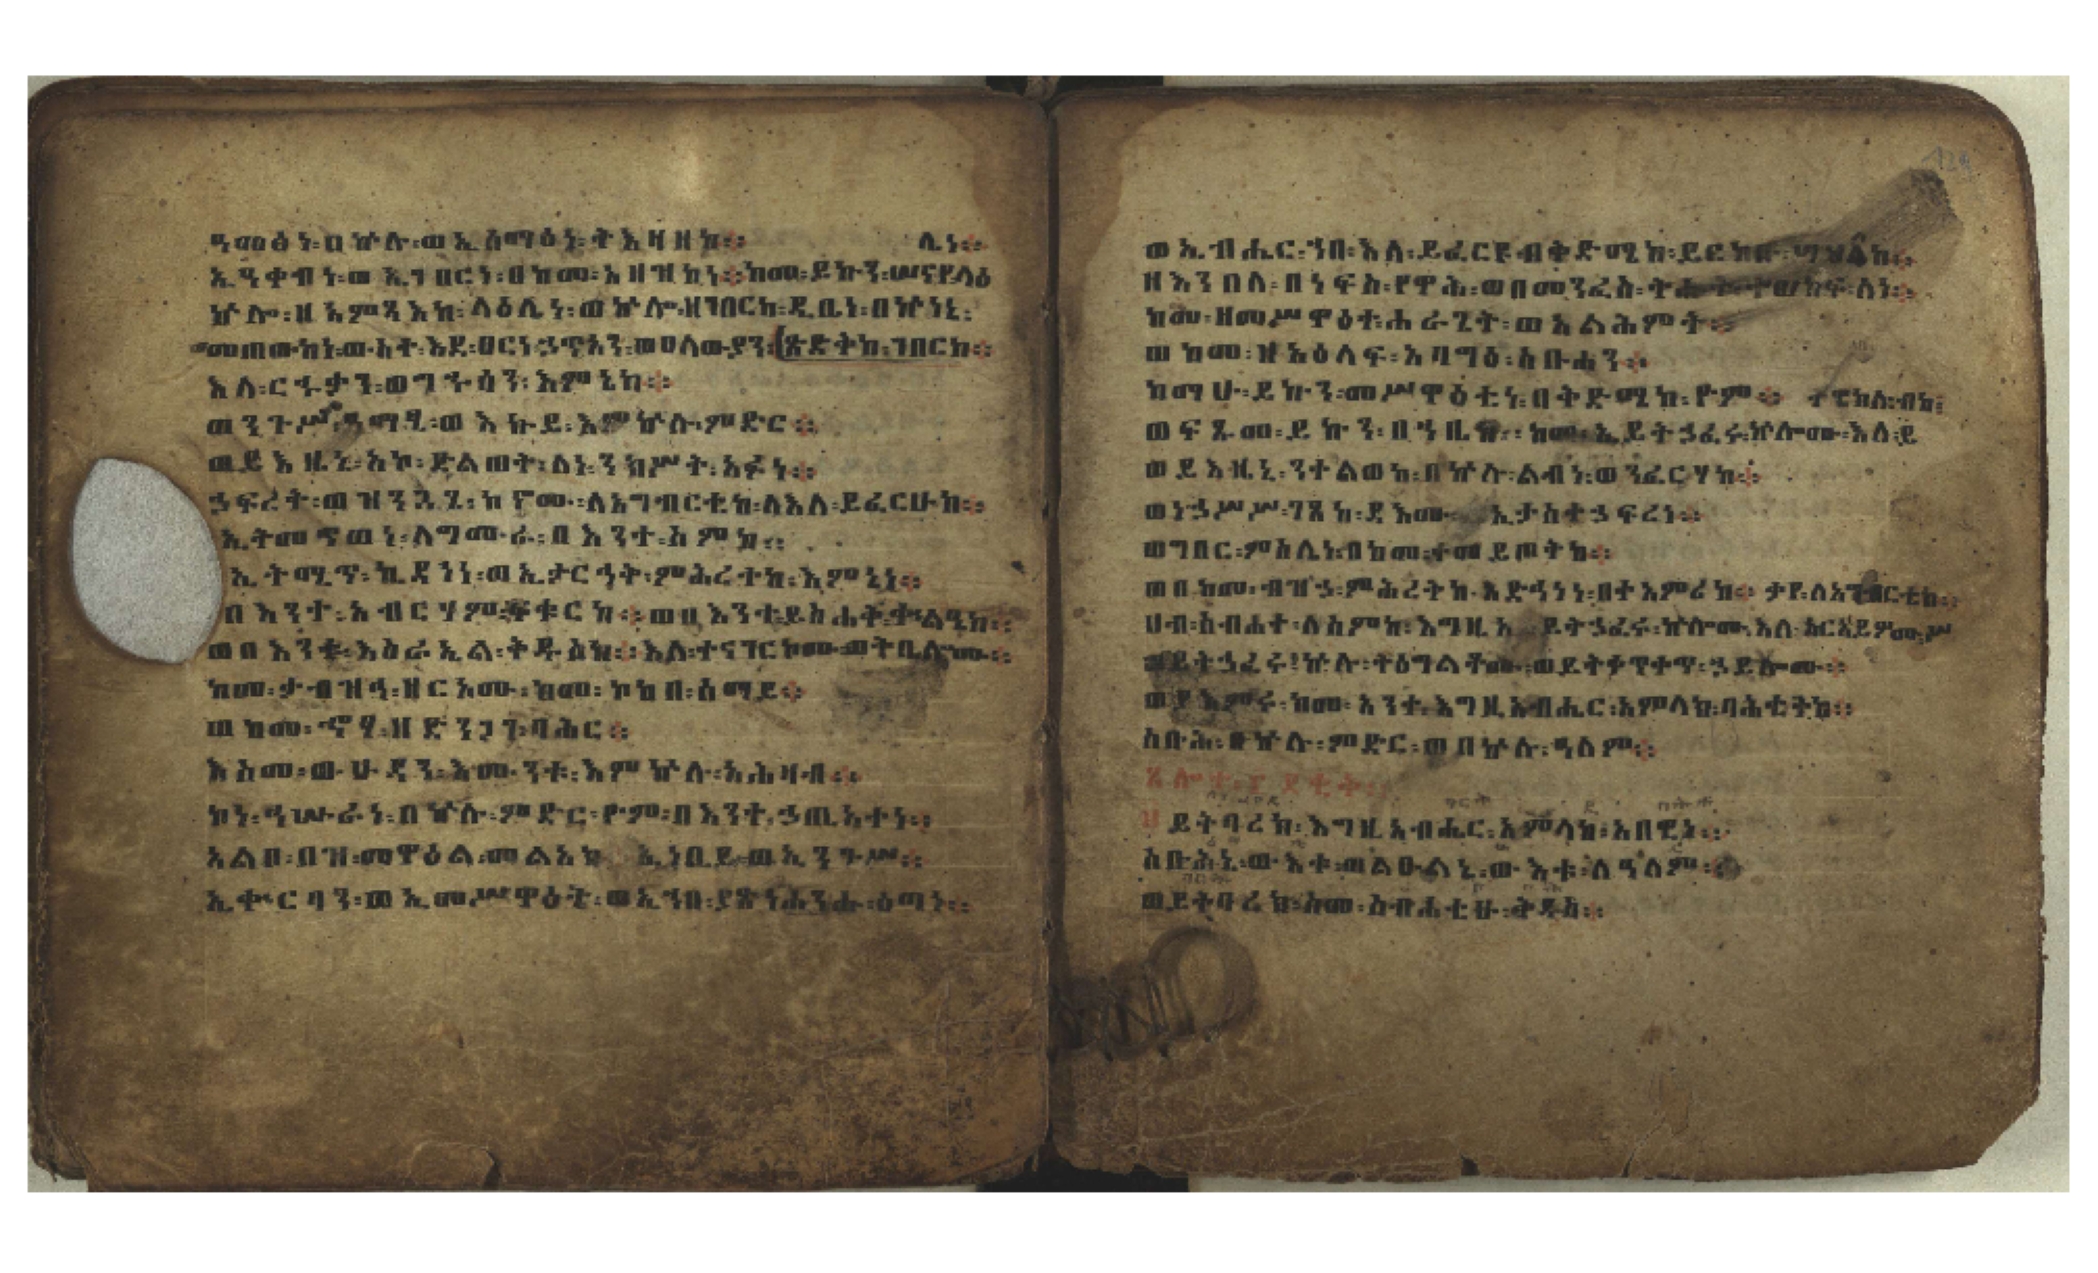 ዓመፅነ፡በኵሉ፡ወኢሰማዕነ፡ትእዛዘከ። ሊነ።
ኢዓቀብነ፡ወኢገበርነ፡በከመ፡አዘዝከነ።ከመ፡ይኩን፡ሠናየ፡ላዕ
ኵሎ፡ዘአምጻእከ፡ላዕሌነ፡ወኵሎ፡ዘገበርከ፡ዲቤነ፡በኵነኔ፡
መጠውከነ፡ውስተ፡እደ፡ፀርነ፡ኃጥአን፡ወዐላውያን፡ጽድቅከ፡ገበርከ።
እለ፡ርኁቃን፡ወግኁሳን፡እምኔከ።
ወንጉሥ፡ዓማፂ፡ወእኩይ፡እምኵሉ፡ምድር።
ወይእዜኒ፡አኮ፡ድልወት፡ለነ፡ንክሥት፡አፉነ።
ኃፍረት፡ወዝንጓጔ፡ኮኖሙ፡ለአግብርቲከ፡ለእለ፡ይፈርሁከ።
ኢትመጥወነ፡ለግሙራ፡በእንተ፡ስምከ።
ኢትሚጥ፡ኪዳነነ፡ወኢታርኅቅ፡ምሕረተከ፡እምኔነ።
በእንተ፡አብርሃም፡ፍቁርከ።ወበእንተ፡ይስሐቅ፡ቍልዔከ።
ወበእንተ፡እስራኢል፡ቅዱስከ።እለ፡ተናገርኮሙ፡ወትቤሎሙ።
ከመ፡ታብዝዓ፡ዘርአሙ፡ከመ፡ኮከበ፡ሰማይ።
ወከመ፡ኆፃ፡ዘድንጋገ፡ባሕር።
እስመ፡ውሁዳን፡እሙንቱ፡እምኵሉ፡አሕዛብ።
ኮነ፡ዓሡራነ፡በኵሉ፡ምድር፡ዮም፡በእንተ፡ኃጢአተነ።
አልቦ፡በዝ፡መዋዕል፡መልአክ ኢነቢይ፡ወኢንጉሥ።
ኢቍርባን፡ወኢመሥዋዕት፡ወኢኀበ፡ያጽንሕንሑ፡ዕጣነ።
ወኢብሔር፡ኀበ፡እለ፡ይፈርዩ፡ብቅድሜከ፡ይርከቡ፡ሣህለከ።
ዘእንበለ፡በነፍስ፡የዋሕ፡ወበመንፈስ፡ትሑት፡ተወከፍ፡ለነ።
ከመ፡ዘመሥዋዕተ፡ሐራጊት፡ወአልሕምት።
ወከመ፡ዘአዕላፍ፡አባግዕ፡ስቡሐን።
ከማሁ፡ይኩን፡መሥዋዕቲነ፡በቅድሜከ፡ዮም። ተወከሉ፡ብከ፡
ወፍጹመ፡ይኩን፡በኀቤከ፡ከመ፡ኢይትኃፈሩ፡ኵሎሙ፡እለ፡ይ
ወይእዜኒ፡ንተልወከ፡በኵሉ፡ልብነ፡ወንፈርሃከ።
ወነኃሥሥ፡ገጸከ፡ዳእሙ ኢታስተኃፍረነ።
ወግበር፡ምስሌነ፡በከመ፡ተመይጦትከ።
ወበከመ፡ብዝኃ፡ምሕረትከ፡አድኅነነ፡በተአምሪከ። ታየ፡ለአግብርቲከ።
ሀብ፡ስብሐተ፡ለስምከ፡እግዚአ ይትኃፈሩ፡ኵሎሙ፡እለ፡አርአይዎሙ፡ሥ
ወይትኃፈሩ፡ኵሉ፡ትዕግልቶሙ፡ወይትቀጥቀጥ፡ኃይሎሙ።
ወያእምሩ፡ከመ፡አንተ፡እግዚአብሔር፡አምላክ፡ባሕቲትከ።
ስቡሕ፡በኵሉ፡ምድር፡ወበኵሉ፡ዓለም።
ይትባረክ፡እግዚአብሔር፡አምላከ፡አበዊነ።
ስቡሕኒ፡ውእቱ፡ወልዑልኒ፡ውእቱ፡ለዓለም።
ወይትባረክ፡ስመ፡ስብሐቲሁ፡ቅዱስ።